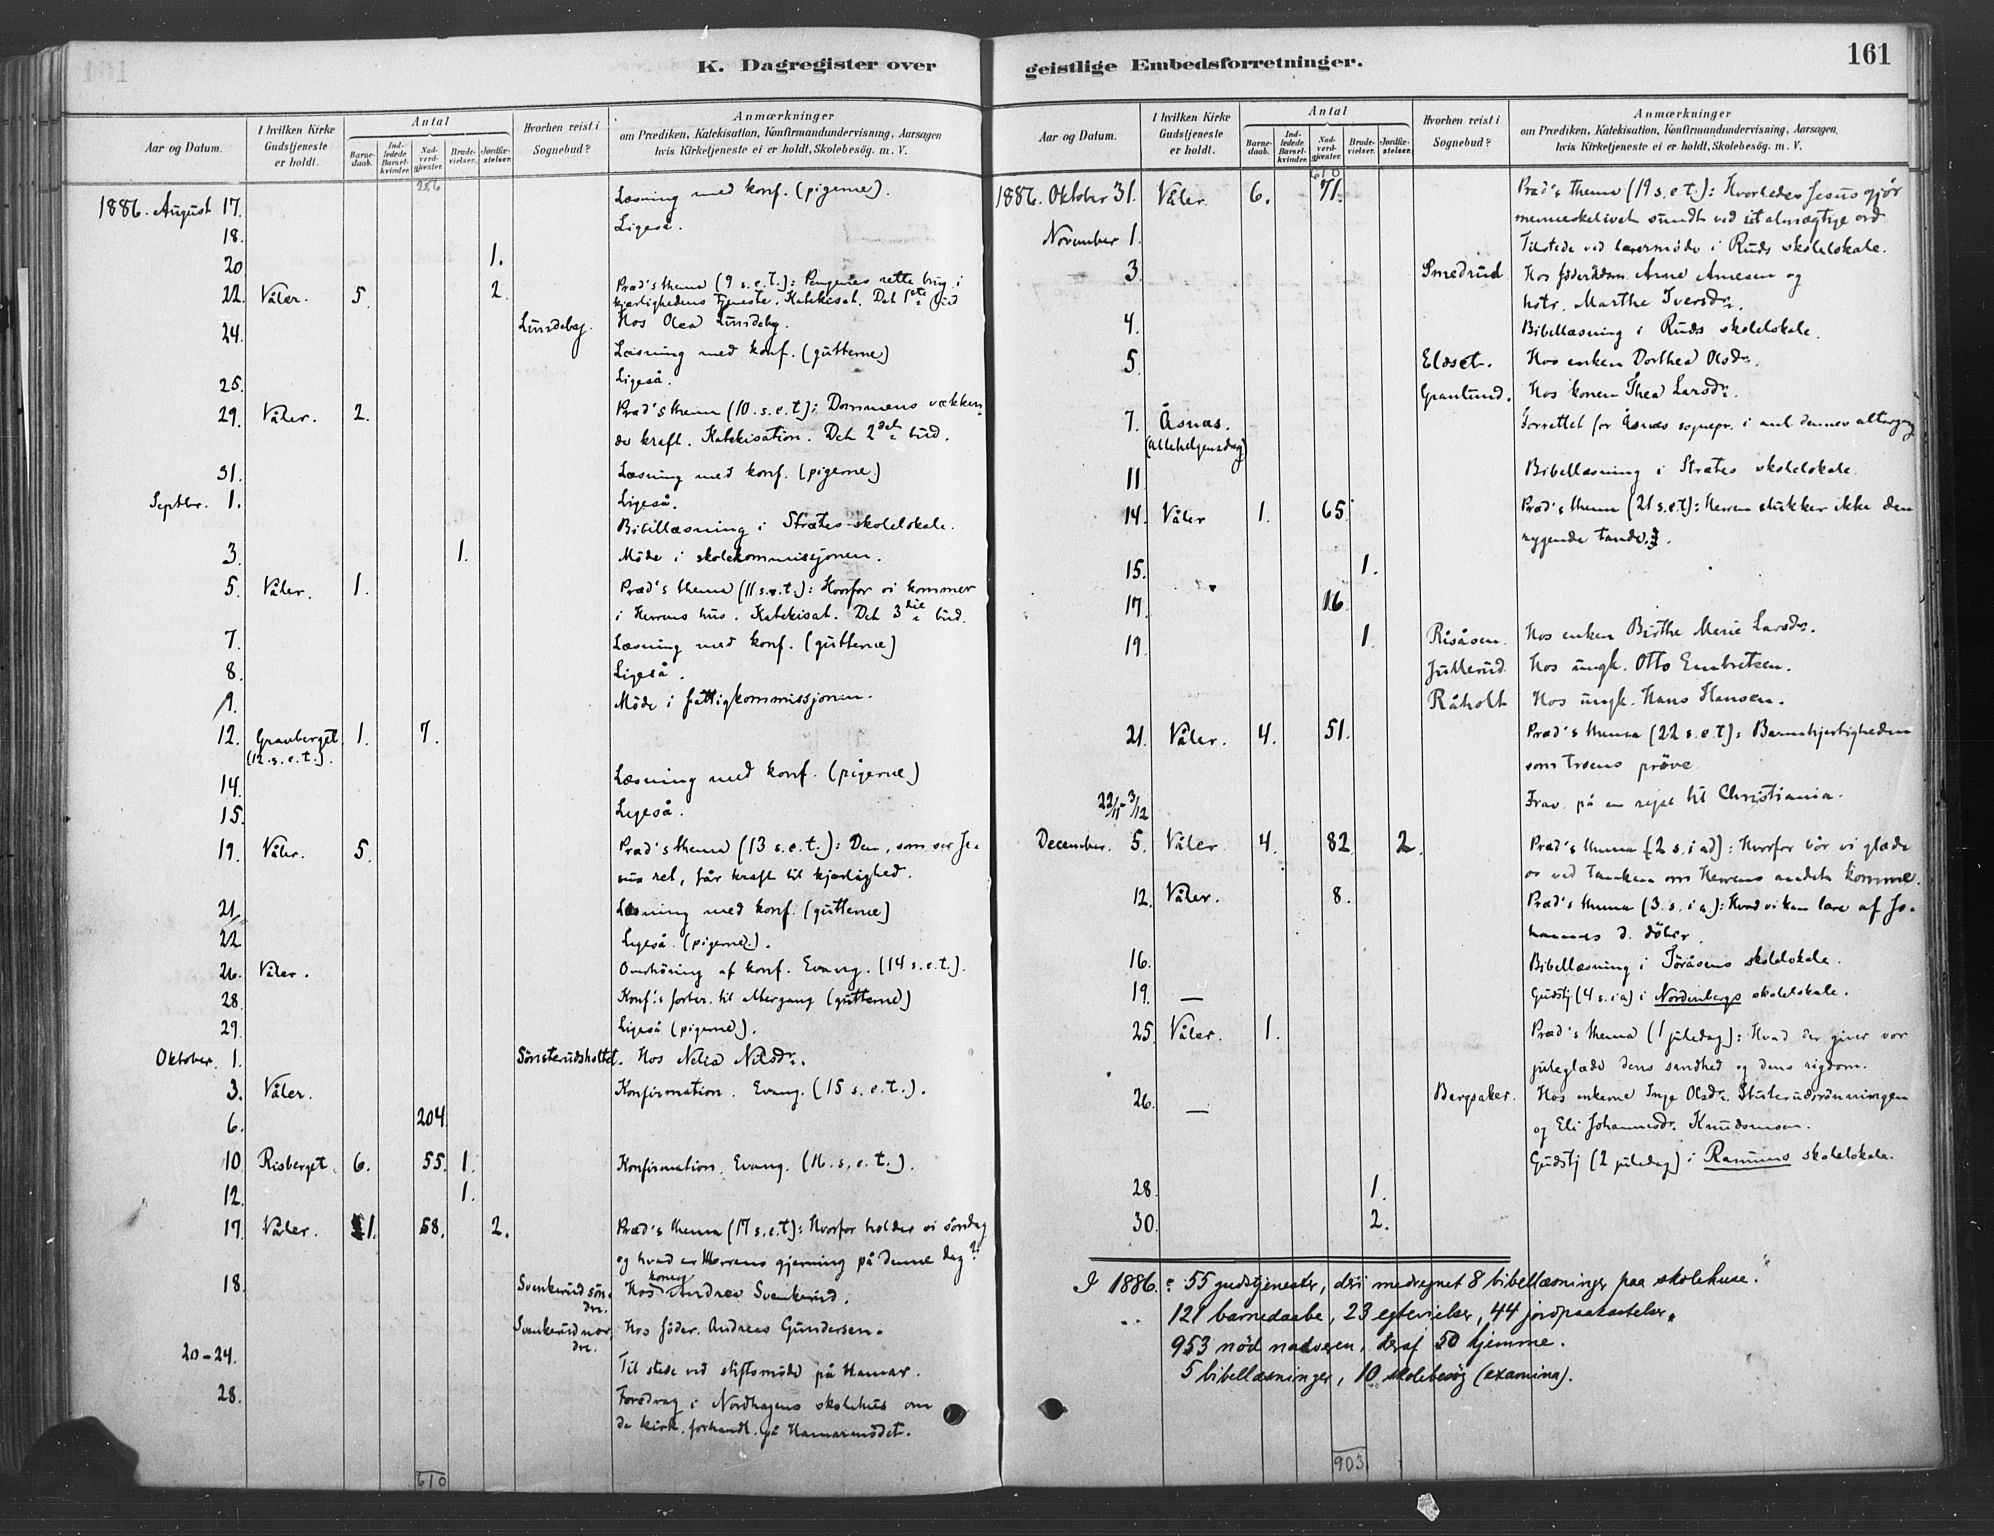 161
K. Dagregister over geistlige Embedsforretninger.
Aar og Datum.
I hvilken Kirke Gudstjeneste er holdt.
Antal
Barnedaab.
Indledede Barselkvinder.
Nadverdgjester.
Brudevielser.
Jordfæstelser.
Hvorhen reist i Sognebud?
Anmærkninger
om Prædiken, Katekisation, Konfirmandundervisning, Aarsagen
hvis Kirketjeneste ei er holdt, Skolebesøg. m. V.
286
1886. August 17. Læsning med konf. (pigerne).
18. Ligeså.
20 1.
22. Våler. 5. 2. Præd's thema (9 s.e.t.): Pengenes rette brug i
kjærlighedens tjeneste. Katekisat. Det 1ste bud
24. Lundeby. Hos Olea Lundeby.
Læsning med konf. (gutterne)
25. Ligeså.
29. Våler. 2. Præd's thema (10. s.e.t): Dommens vækken-
de kraft. Katekisation. Det 2det bud.
31. Læsning med konf. (pigerne)
Septbr. 1. Ligeså.
Bibellæsning i Stræte skolelokale.
3. 1. Møde i skolekommissjonen.
5. Våler. 1. Præd's thema (11 s.e.t.): Hvorfor vi kommer
i Herrens hus. Katekisat. Det 3die bud.
7. Læsning med konf. (gutterne)
8. Ligeså.
Møde i fattigkommissjonen.
12. Gravberget. 1. 7.
(12. s. e. t.).
14. Læsning med konf. (pigerne)
15. Ligeså.
19. Våler. 5. Præd's thema (13 s.e.t.): Den, som ser Je-
sus ret, får kraft til kjærlighed.
21. Læsning med konf. (gutterne)
22 Ligeså. (pigerne).
26. Våler. Overhöring af konf. Evang. (14 s.e.t.).
28. Konf's forber. til altergang (gutterne)
29. Ligeså (pigerne).
Oktober. 1. Sønsterudsholtet. Hos Nilsdr.
3. Våler. Konfirmation. Evang. (15 s.e.t.).
6. 204
10 Risberget. 6. 55. 1. Konfirmation. Evang. (16. s. e. t.).
12. 1.
17. Våler. 1. 58. 2. Præd's thema (17 s.e.t): Hvorfor holder vi söndag
og hvad er Herrens gjerning på denne dag?
18. Svenkerud søn- Hos konen Andrea Svenkerud.
dre.
Svenkerud nor Hos föder. Andreas Gundersen.
dre.
20-24. Til stede ved stiftsmöde på Hamar.
28. Foredrag i Nordhagens skolehus om
de kirk. forhandl. på Hamarmödet.
610
161
Aar og Datum.
I hvilken Kirke Gudstjeneste er holdt.
Antal
Barnedaab.
Indledede Barselkvinder.
Nadverdgjester.
Brudevielser.
Jordfæstelser.
Hvorhen reist i Sognebud?
Anmærkninger
om Prædiken, Katekisation, Konfirmandundervisning, Aarsagen,
hvis Kirketjeneste ei er holdt, Skolebesøg. m. V.
610
1886. Oktober 31. Våler. 6. 71. Præd's thema (19 s.e.t.): Hvorledes Jesus gjør
menneskelivet sundt ved sit almægtige ord
November 1. Tilstede ved lærermöde i Ruds skolelokale.
3. Smedrud. Hos Arne Arnesen og
hstr. Marthe Iversdr.
4. Bibellæsning i Ruds skolelokale.
5. Eldset. Hos enken Dorthea Olsdr.
Granlund. Hos konen Thea Larsdr.
7. Åsnæs. Forrettet for Åsnæs sognepr. i anl. dennes altergang
(allehelgensdag)
11. Bibellæsning i Stræte skolelokale.
14. Våler 1. 65. Præd's thema (21 s.e.t): Herren slukker ikke den
rygende tande.
15. 1.
17. 16
19. 1. Risåsen. Hos enken Birthe Marie Larsdr.
Jullerud. Hos ungk. Otto Embretsen.
Råholt Hos ungk. Hans Hansen.
21. Våler. 4. 51. Præd's thema (22 s.e.t): Barmhjertigheden
som troens pröve.
22/11-3/12 Frav. på en rejse til Christiania.
December. 5. Våler. 4. 82 2. Præd's thema (2 s. i ad): Hvorfor bör vi glæde
os ved tanken om Herrens andet komme.
12. Våler. 8. Præd's thema (3. s. i a.): Hvad vi kan lære af Jo-
hannes d. döber.
16. Bibellæsning i Töråsens skolelokale.
19. — Gudstj (4 s. i a) i Nordenbergs skolelokale.
25. Våler. 1. Præd's thema (1 juledag): Hvad der giver vor
juleglæde dens sandhed og dens rigdom.
26. — Bergsaker. Hos enkerne Inge Olsdr.
og Eli Johannesdr. Knudsmoen.
Gudstj (2 juledag) i skolelokale.
28. 1.
30. 2.
I 1886: 55 gudstjenester, deri medregnet 8 bibellæsninger paa skolehuse.
" 121 barnedaabe, 23 egtevielser, 44 jordpaakastelser,
953 nød nadveren, deraf 50 hjemme.
5 bibellæsninger, 10 skolebesøg (examina).
903.